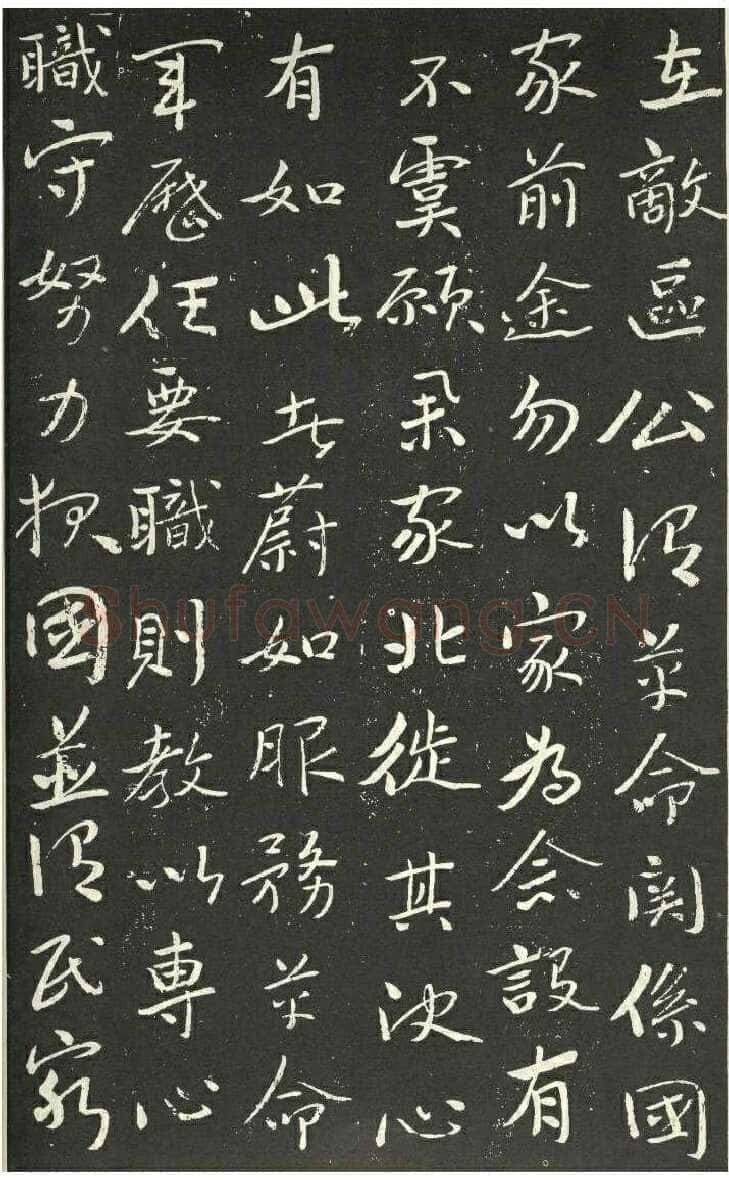 在敵區公謂革命關係國
家前途勿以家為念設有
不虞願舉家北徙其決心
有如此者蔚如服務革命
軍歷任要職則教以專心
職守努力報國並謂民窮
Shufawang.CN